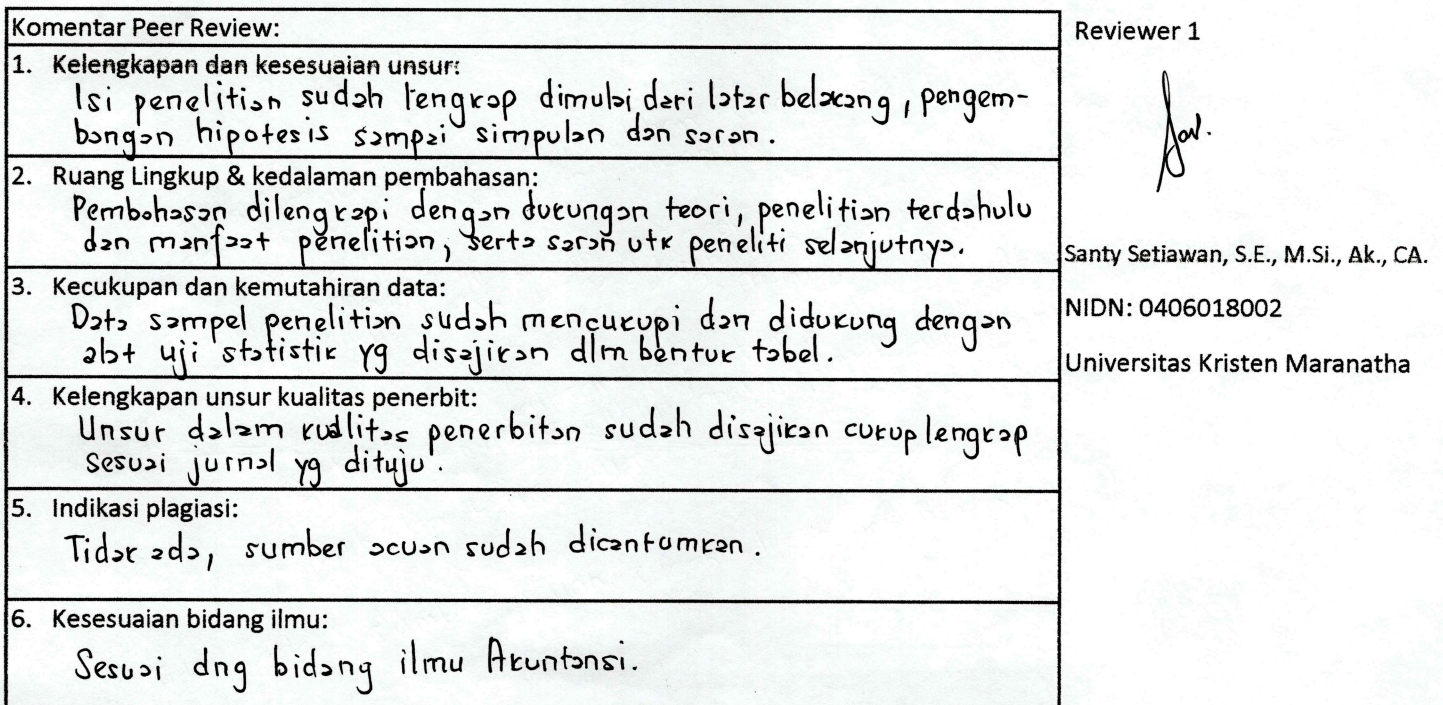 Komentar Peer Review:
1. Kelengkapan dan kesesuaian unsur:
Isi penelitian sudah lengkap dimulai dari latar belakang, pengem-
bangan hipotesis sampai simpulan dan saran.
2. Ruang Lingkup & kedalaman pembahasan:
Pembahasan dilengkapi dengan dukungan teori, penelitian terdahulu
dan manfaat penelitian, serta saran utk peneliti selanjutnya.
3. Kecukupan dan kemutahiran data:
Data sampel penelitian sudah mencukupi dan didukung dengan
alat uji statistik yg disajikan dlm bentuk tabel.
4. Kelengkapan unsur kualitas penerbit:
Unsur dalam kualitas penerbitan sudah disajikan cukup lengkap
sesuai jurnal yg dituju.
5. Indikasi plagiasi:
Tidak ada, sumber acuan sudah dicantumkan.
6. Kesesuaian bidang ilmu:
Sesuai dng bidang ilmu Akuntansi.
Reviewer 1
Santy Setiawan, S.E., M.Si., Ak., CA.
NIDN: 0406018002
Universitas Kristen Maranatha